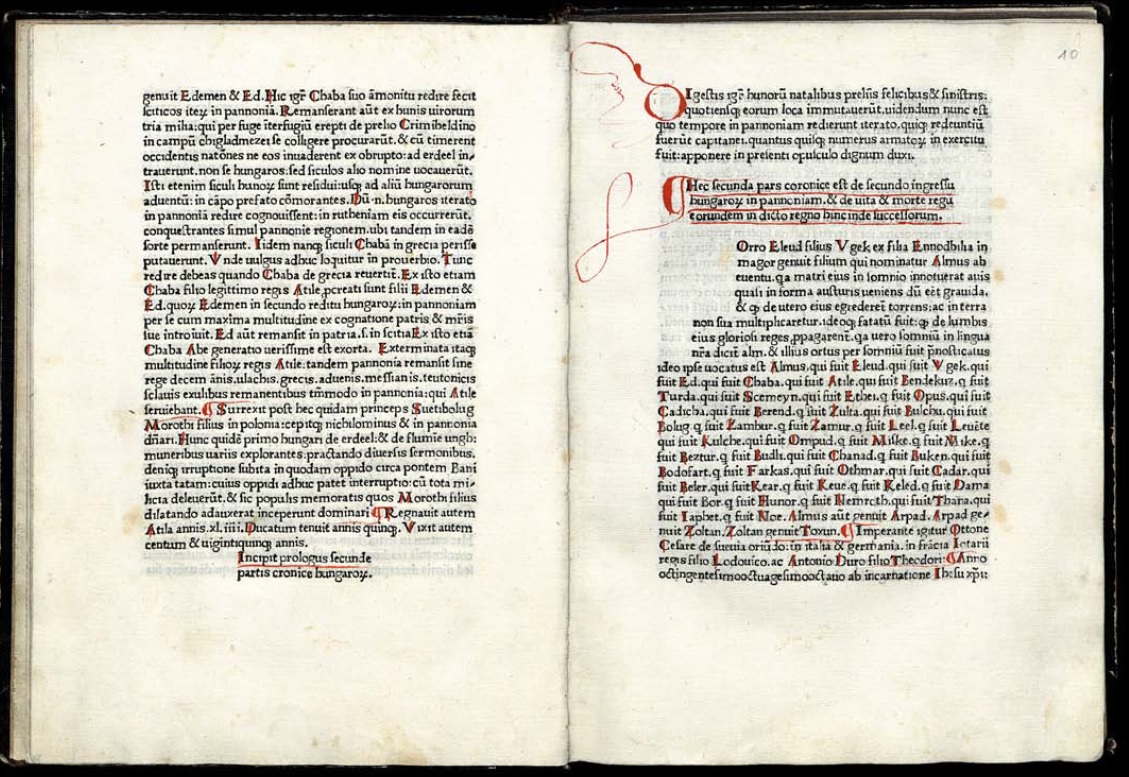 genuit Edemen & Ed. Hic igr̄ Chaba suo āmonitu redire fecit
sciticos iteꝝ in pannoniā. Remanserant aūt ex hunis uirorum
tria milia: qui per fuge iterfugiū erepti de prelio Crimiheldino
in campū chigladmezei se colligere procurarūt. & cū timerent
occidentis natōnes ne eos inuaderent ex obrupto: ad erdeel in⸗
trauerunt. non se hungaros: sed siculos alio nomine uocauerūt.
Isti etenim siculi hunoꝝ sunt residui: usqꝫ ad aliū hungarorum
aduentū: in cāpo prefato cōmorantes. Dū .n. hungaros iterato
in pannoniā redire cognouissent: in rutheniam eis occurrerūt.
conquestrantes simul pannonie regionem. ubi tandem in eadē
sorte permanserunt. Iidem nanqꝫ siculi Chabā in grecia perisse
putauerunt. Vnde uulgus adhuc loquitur in prouerbio. Tunc
redire debeas quando Chaba de grecia reuertit̄. Ex isto etiam
Chaba filio legittimo regis Atile ꝓcreati sunt filii Edemen &
Ed. quoꝝ Edemen in secundo reditu hungaroꝝ: in pannoniam
per se cum maxima multitudine ex cognatione patris & mr̄is
sue introiuit. Ed aūt remansit in patria .s. in scitia Ex isto etiā
Chaba Abe generatio uerissime est exorta. Exterminata itaqꝫ
multitudine filioꝝ regis Atile: tandem pannonia remansit sine
rege decem ānis. ulachis. grecis. aduenis. messianis. teutonicis
sclauis exulibus remanentibus tm̄modo in pannonia: qui Atile
seruiebant. ¶ Surrexit post hec quidam princeps Suetibolug
Morothi filius in polonia: cepitqꝫ nichilominus & in pannonia
dn̄ari. Hunc quidē primo hungari de erdeel: & de flumie ungh:
muneribus uariis explorantes: practando diuersis sermonibus.
deniqꝫ irruptione subita in quodam oppido circa pontem Bani
iuxta tatam: cuius oppidi adhuc patet interruptio: cū tota mi⸗
licia deleuerūt. & sic populis memoratis quos Morothi filius
dilatando adauxerat inceperunt dominari ¶ Regnauit autem
Atila annis .xl. iiii. Ducatum tenuit annis quinqꝫ. Vixit autem
centum & uigintiquinqꝫ annis.
Incipit prologus secunde
partis cronice hungaroꝝ.
10
DIgestis igr̄ hunorū natalibus preliis felicibus & sinistris:
quotiensqꝫ eorum loca immutauerūt. uidendum nunc est
quo tempore in pannoniam redierunt iterato. quiqꝫ redeuntiū
fuerūt capitanei. quantus quilqꝫ numerus armatoꝝ in exercitu
fuit: apponere in presenti opulculo dignum duxi.
¶ Hec secunda pars coronice est de secundo ingressu
hungaroꝝ in pannoniam. & de uita & morte regū
eorundem in dicto regno hinc inde successorum.
Orro Eleud filius Vgek ex filia Ennodbilia in
magor genuit filium qui nominatur Almus ab
euentu. qa matri eius in somnio innotuerat auis
quasi in forma austuris ueniens dū eēt grauida.
& ꝙ de utero eius egrederet̄ torrens: ac in terra
non sua multiplicaretur. ideoqꝫ fatatū fuit: ꝙ de lumbis
eius gloriosi reges ꝓpagarent̄. qa uero somniū in lingua
nr̄a dicit̄ alm. & illius ortus per somniū fuit ꝑnosticatus
ideo ipse uocatus est Almus. qui fuit Eleud. qui fuit Vgek. qui
fuit Ed. qui fuit Chaba. qui fuit Atile. qui fuit Bendekuz. q̄ fuit
Turda. qui fuit Scemeyn. qui fuit Ethei. q̄ fuit Opus. qui fuit
Cadicha. qui fuit Berend. q̄ fuit Zulta. qui fuit Bulchu. qui fuit
Bolug. q̄ fuit Zambur. q̄ fuit Zamur. q̄ fuit Leel. q̄ fuit Leuēte
qui fuit Kulche. qui fuit Ompud. q̄ fuit Miske. q̄ fuit Mike. q̄
fuit Beztur. q̄ fuit Budli. qui fuit Chanad. q̄ fuit Buken. qui fuit
Bodofart. q̄ fuit Farkas. qui fuit Othmar. qui fuit Cadar. qui
fuit Beler. qui fuit Kear. q̄ fuit Keue. q̄ fuit Keled. q̄ fuit Dama
qui fuit Bor. q̄ fuit Hunor. q̄ fuit Nemroth. qui fuit Thana. qui
fuit Iaphet. q̄ fuit Noe. Almus aūt genuit Arpad. Arpad ge⸗
nuit Zoltan. Zoltan genuit Toxun. ¶ Imperante igitur Ottone
Cesare de sueuia oriūdo: in italia & germania. in frācia Lotarii
regis filio Lodouico. ac Antonio Duro filio Theodori: ¶ Anno
octingentesimooctuagesimooctauo ab incarnatione Ihesu xp̄i: